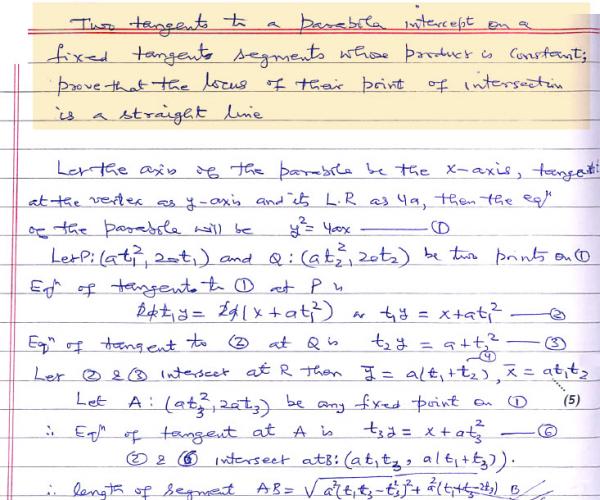 Two tangents to a parabola intercept on a
fixed tangents segments whose product is constant;
prove that the locus of their point of intersection
is a straight line
Let the axis of the parabola be the x-axis, tangent
at the vertex as y-axis and its L.R as 4a, then the eqⁿ
of the parabola will be y² = 4ax —— ①
Let P: (at₁², 2at₁) and Q: (at₂², 2at₂) be two points on ①
Eqⁿ of tangents to ① at P is
2at₁y = 2a(x + at₁²) or t₁y = x + at₁² —— ②
Eqⁿ of tangent to ② at Q is t₂y = a + t₂² —— ③
Let ② & ③ intersect at R then ȳ = a(t₁ + t₂) ④, x̄ = at₁t₂ (5)
Let A: (at₃², 2at₃) be any fixed point on ①
∴ Eqⁿ of tangent at A is t₃y = x + at₃² —— ⑥
② & ⑥ intersect at B: (at₁t₃, a(t₁ + t₃)).
∴ length of segment AB = √a²(t₁t₃ - t₃²)² + a²(t₁+t₃-2t₃) B